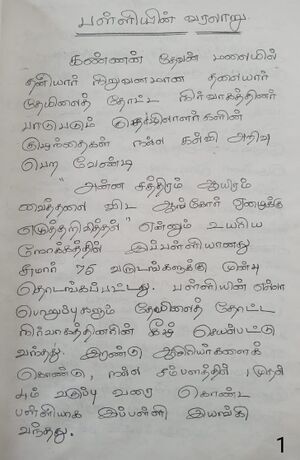 பள்ளியின் வரலாறு
கண்ணன் தேவன் மலையில்
தனியார் நிறுவனமான தலையார்
தேயிலைத் தோட்ட நிர்வாகத்தினர்
பாடுபடும் தொழிலாளர்களின்
குழந்தைகள் நல்ல கல்வி அறிவு
பெற வேண்டி
"அன்ன சத்திரம் ஆயிரம்
வைத்தலை விட ஆங்கோர் ஏழைக்கு
எழுத்தறிவித்தல்" என்னும் உயரிய
நோக்கத்தில் இப்பள்ளியானது
சுமார் 75 வருடங்களுக்கு முன்பு
தொடங்கப்பட்டது. பள்ளியின் எல்லா
பொறுப்புகளும் தேயிலைத் தோட்ட
நிர்வாகத்தினரின் கீழ் செயல்பட்டு
வந்தது. இரண்டு ஆசிரியர்களைக்
கொண்டு, நல்ல சம்பளத்தில் 1 முதல்
4ம் வகுப்பு வரை கொண்ட
பள்ளியாக இப்பள்ளி இயங்கி
வந்தது.
1